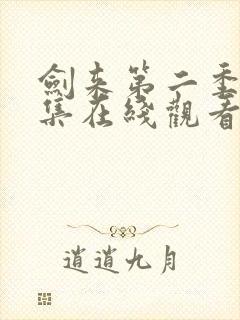 劍来第二季
集在綫觀看
逍遥九月